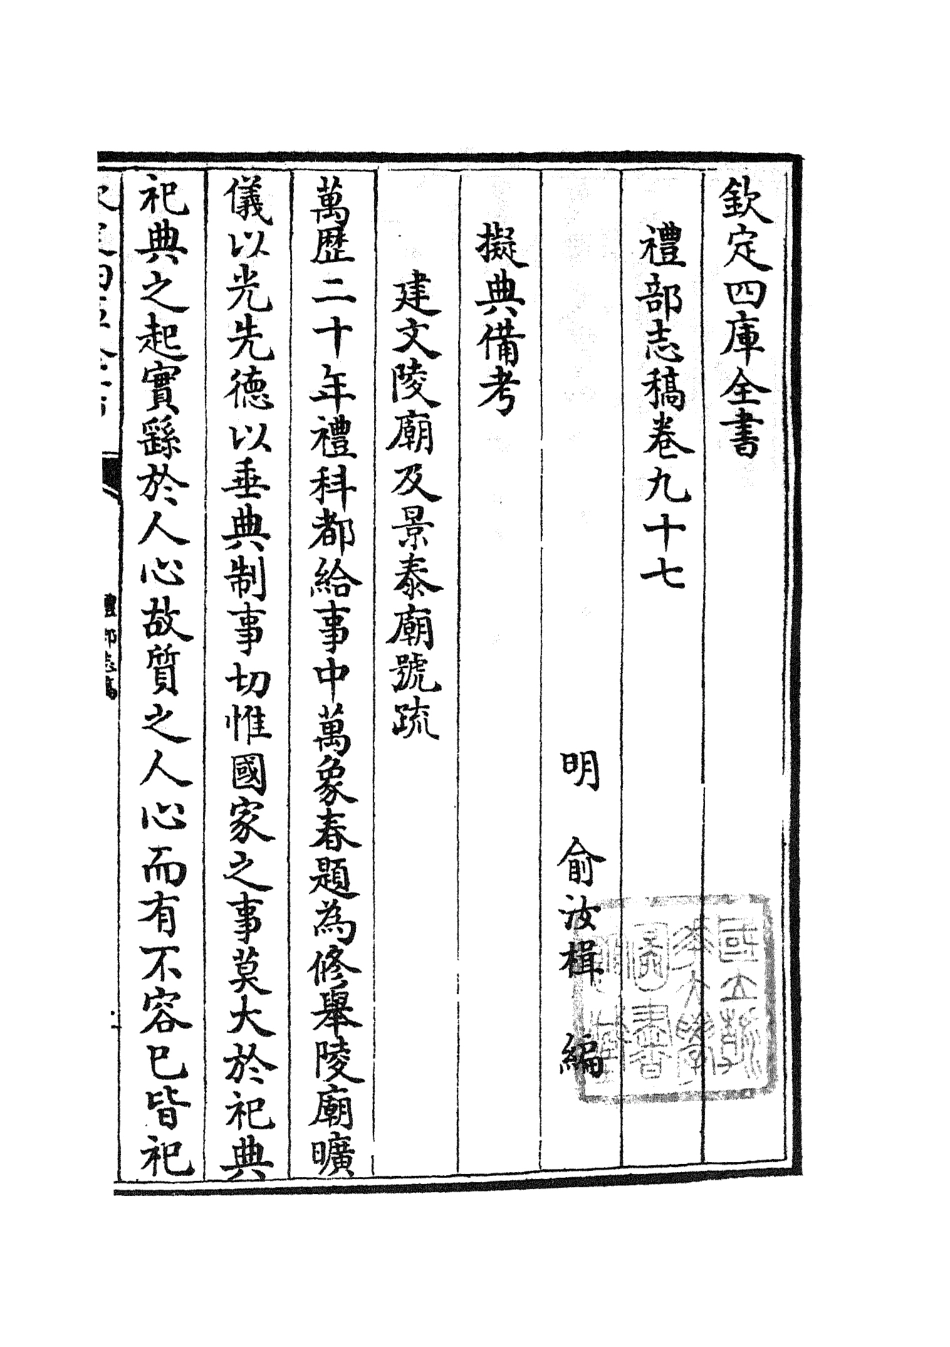 欽定四庫全書
禮部志稿卷九十七
明 俞汝楫 編
擬典備考
建文陵廟及景泰廟號疏
萬歴二十年禮科都給事中萬象春題為修舉陵廟曠
儀以光先德以垂典制事切惟國家之事莫大於祀典
祀典之起實繇於人心故質之人心而有不容已皆祀
禮部志稿